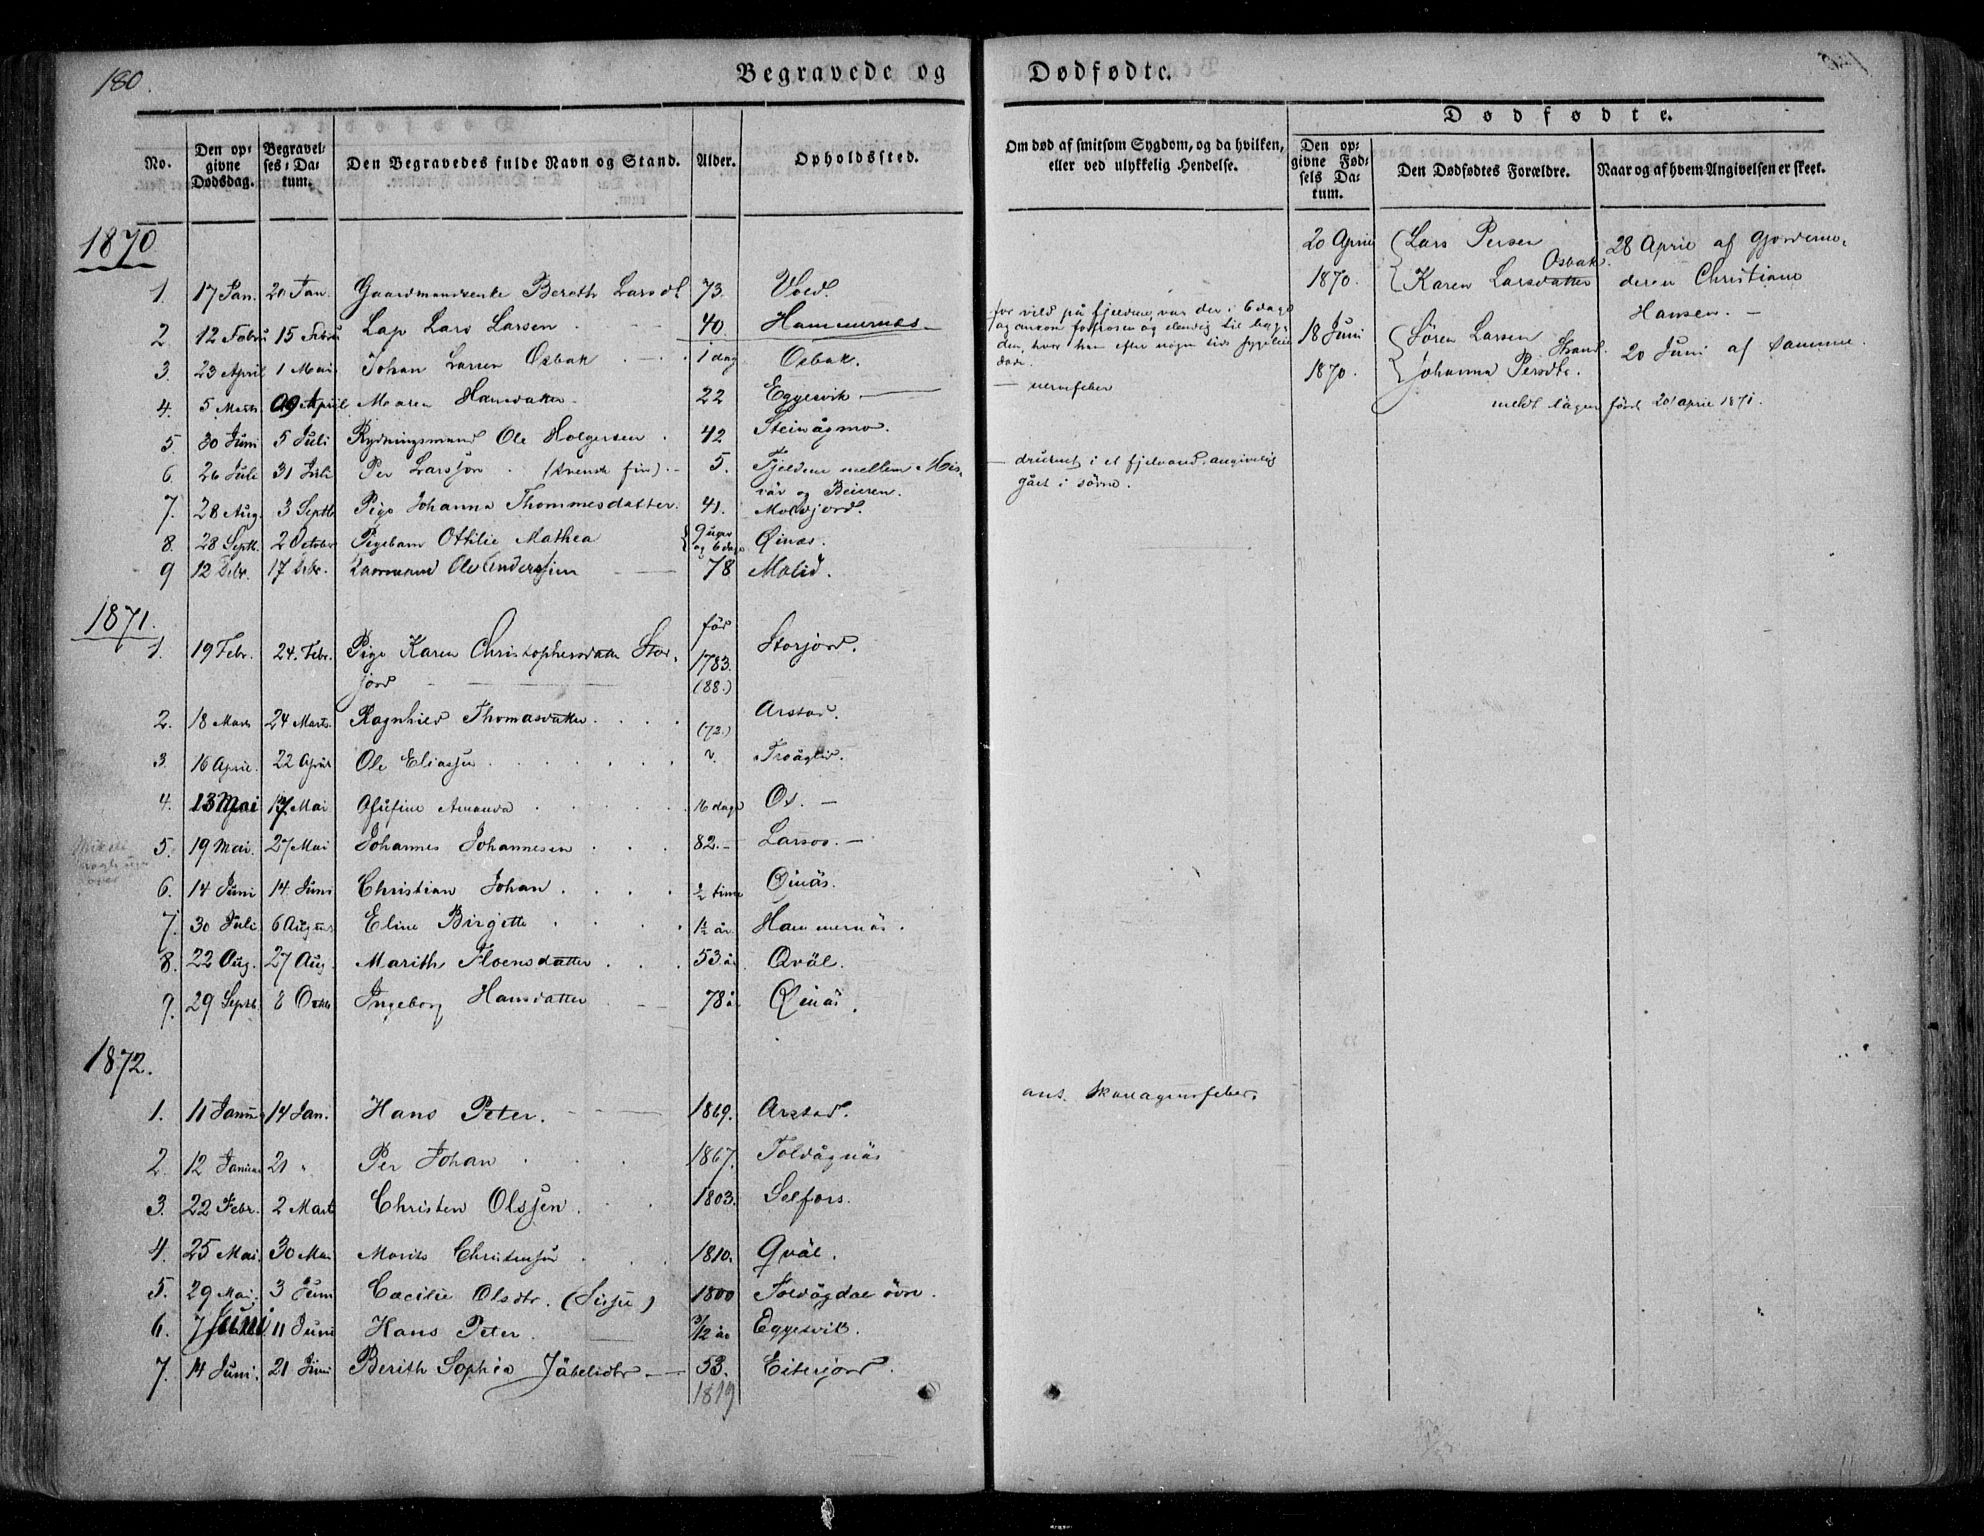 180.
Begravede og Dødfødte.
No.
Den op-
givne
Dødsdag.
Begravel-
ses-Da-
tum.
Den Begravedes fulde Navn og Stand.
Alder.
Opholdssted.
Om død af smitsom Sygdom, og da hvilken,
eller ved ulykkelig Hendelse.
Dødfødte.
Den op-
givne Fød-
sels Da-
tum.
Den Dødfødtes Forældre.
Naar og af hvem Angivelsen er skeet.
1870
1. 17 Jan. 20 Jan. Gaardmandsenke Bereth Larsdt 73. Vold.
2. 12 Febru 15 Febru Lap Lars Larsen 40. Hammernæs
for vild på fjeldene, var der i 6 dage
3. 23 April 1 Mai Johan Larsen Osbak 1 dag Osbak.
4. 5 Marts 09 April Maren Hansdatter 22 Eggesvik — nervefeber
5. 30 Juni 5 Juli Rydningsmand Ole Holgersen 42 Steinågmo.
6. 26 Juli 31 Juli Per Larssøn (svensk fin) 5. Fjeldene mellem Mis-
vär og Beieren.
— druknet i et fjelvand, angivelig
gået i søvne.
7. 28 Aug. 3 Septb Pige Johanna Thommesdatter 41. Moldjord.
8. 28 Septb. 2 October Pigebarn Ottilie Mathea 9 uger
og 6 dage
9 12 Debr. 17 Debr. Ole Anderssen 78 Molid.
20 April
1870.
Lars Persen
Osbak
Karen Larsdatter
28 April af Gjordemo-
deren Christiane
Hansen. —
18 Juni
1870.
Søren Larsen
Strand.
Johanna Persdtr.
20 Juni af samme.
meldt lägen först 20 april 1871.
1871.
1. 19 Febr. 24. Febr. Pige Karen Christophersdatter Stor-
jord
för
1783.
(88.)
Storjord.
2. 18 Marts 24 Marts. Ragnhild Thomasdatter (72.) Arstad.
3. 16 April. 22 April Ole Eliassen 2. Troåglid.
4. 13 Mai 17. Mai Ofufine Amanda 16 dage Os. —
5. 19 Mai. 27 Mai Johannes Johannesen 82. — Larsos. —
over
6. 14 Juni 14. Juni Christian Johan ½ time
7. 30 Juli 6 August Eline Birgitte 1½ år Hammernäs.
8. 22 Aug. 27 Aug. Marith Floensdatter 53 år Qväl.
9. 29 Septb. 8 Octbr Ingeborg Hansdatter 78 år
1872.
1. 11 Januar 14 Jan. Hans Peter. 1869. Arstad. ant. Skarlagensfeber.
2. 12 Januar 21 " Per Johan 1867. Toldågnäs
3. 22 Febr. 2 Marts Christen Olssen 1803. Selfors.
4. 25 Mai 30 Mai Morits Christensen 1810. Qväl.
5. 29 Mai. 3 Juni Cæcilie Olsdtr. (Sissie) 1800 Toldågdal övre.
6. 7 Juni 11 Juni Hans Peter. 3/12 år Eggesvik.
7. 14 Juni. 21 Juni Berith Sophia Jäbelsdtr 53. Eiterjord.
1819